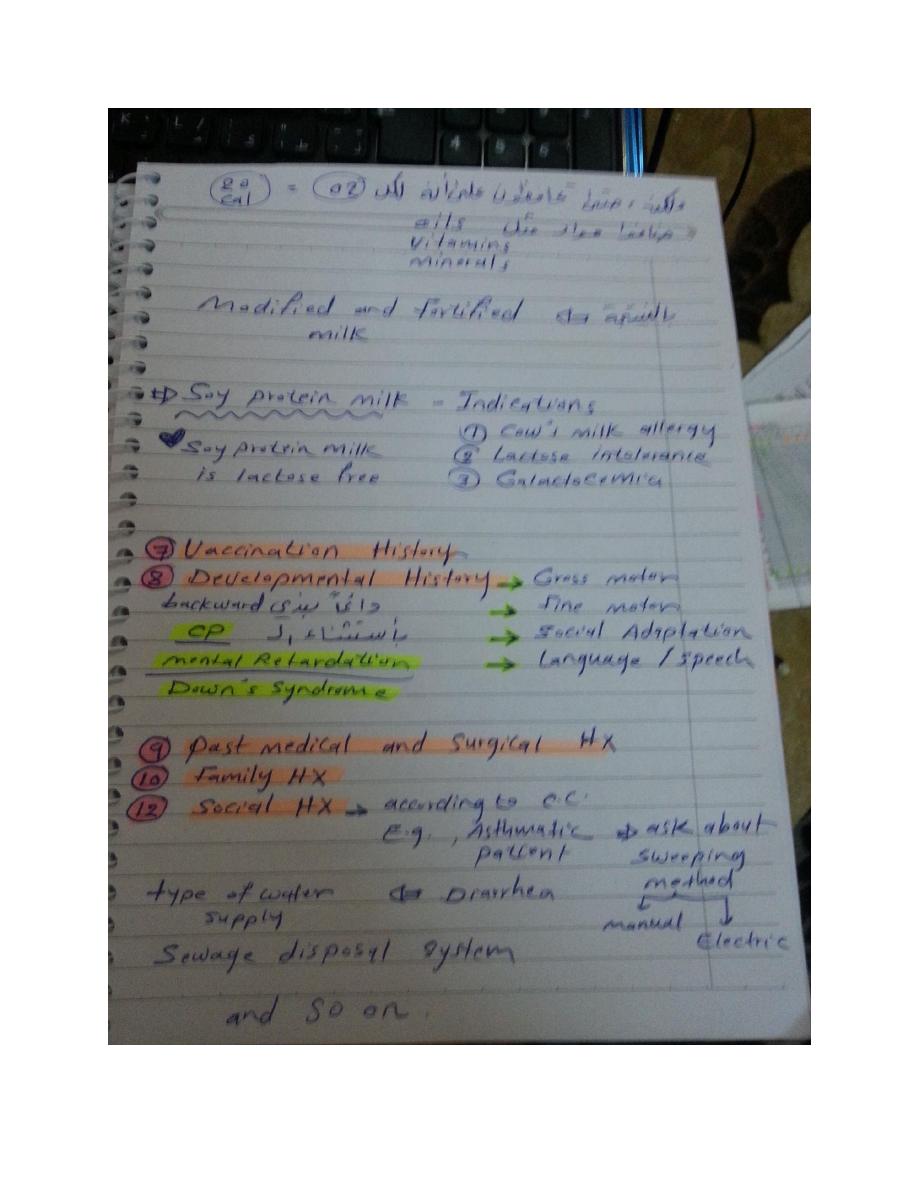 20 cal = oz لكل
oils مثل مواد
vitamins
minerals
Modified and fortified ⇐
milk
⇒ Soy protein milk = Indications
① Cow's milk allergy
♥ Soy protein milk ② Lactose intolerance
is lactose free ③ Galactocemia
⑦ Vaccination History
⑧ Developmental History → Gross motor
backward دائماً نبدي → Fine motor
CP بأستثناء الـ → Social Adaptation
mental Retardation → Language / Speech
Down's Syndrome
⑨ Past medical and Surgical HX
⑩ Family HX
⑫ Social HX → according to c.c.
E.g., Asthmatic ⇒ ask about
patient sweeping
method
type of water ⇐ Diarrhea
supply manual
Electric
Sewage disposal system
and so on.